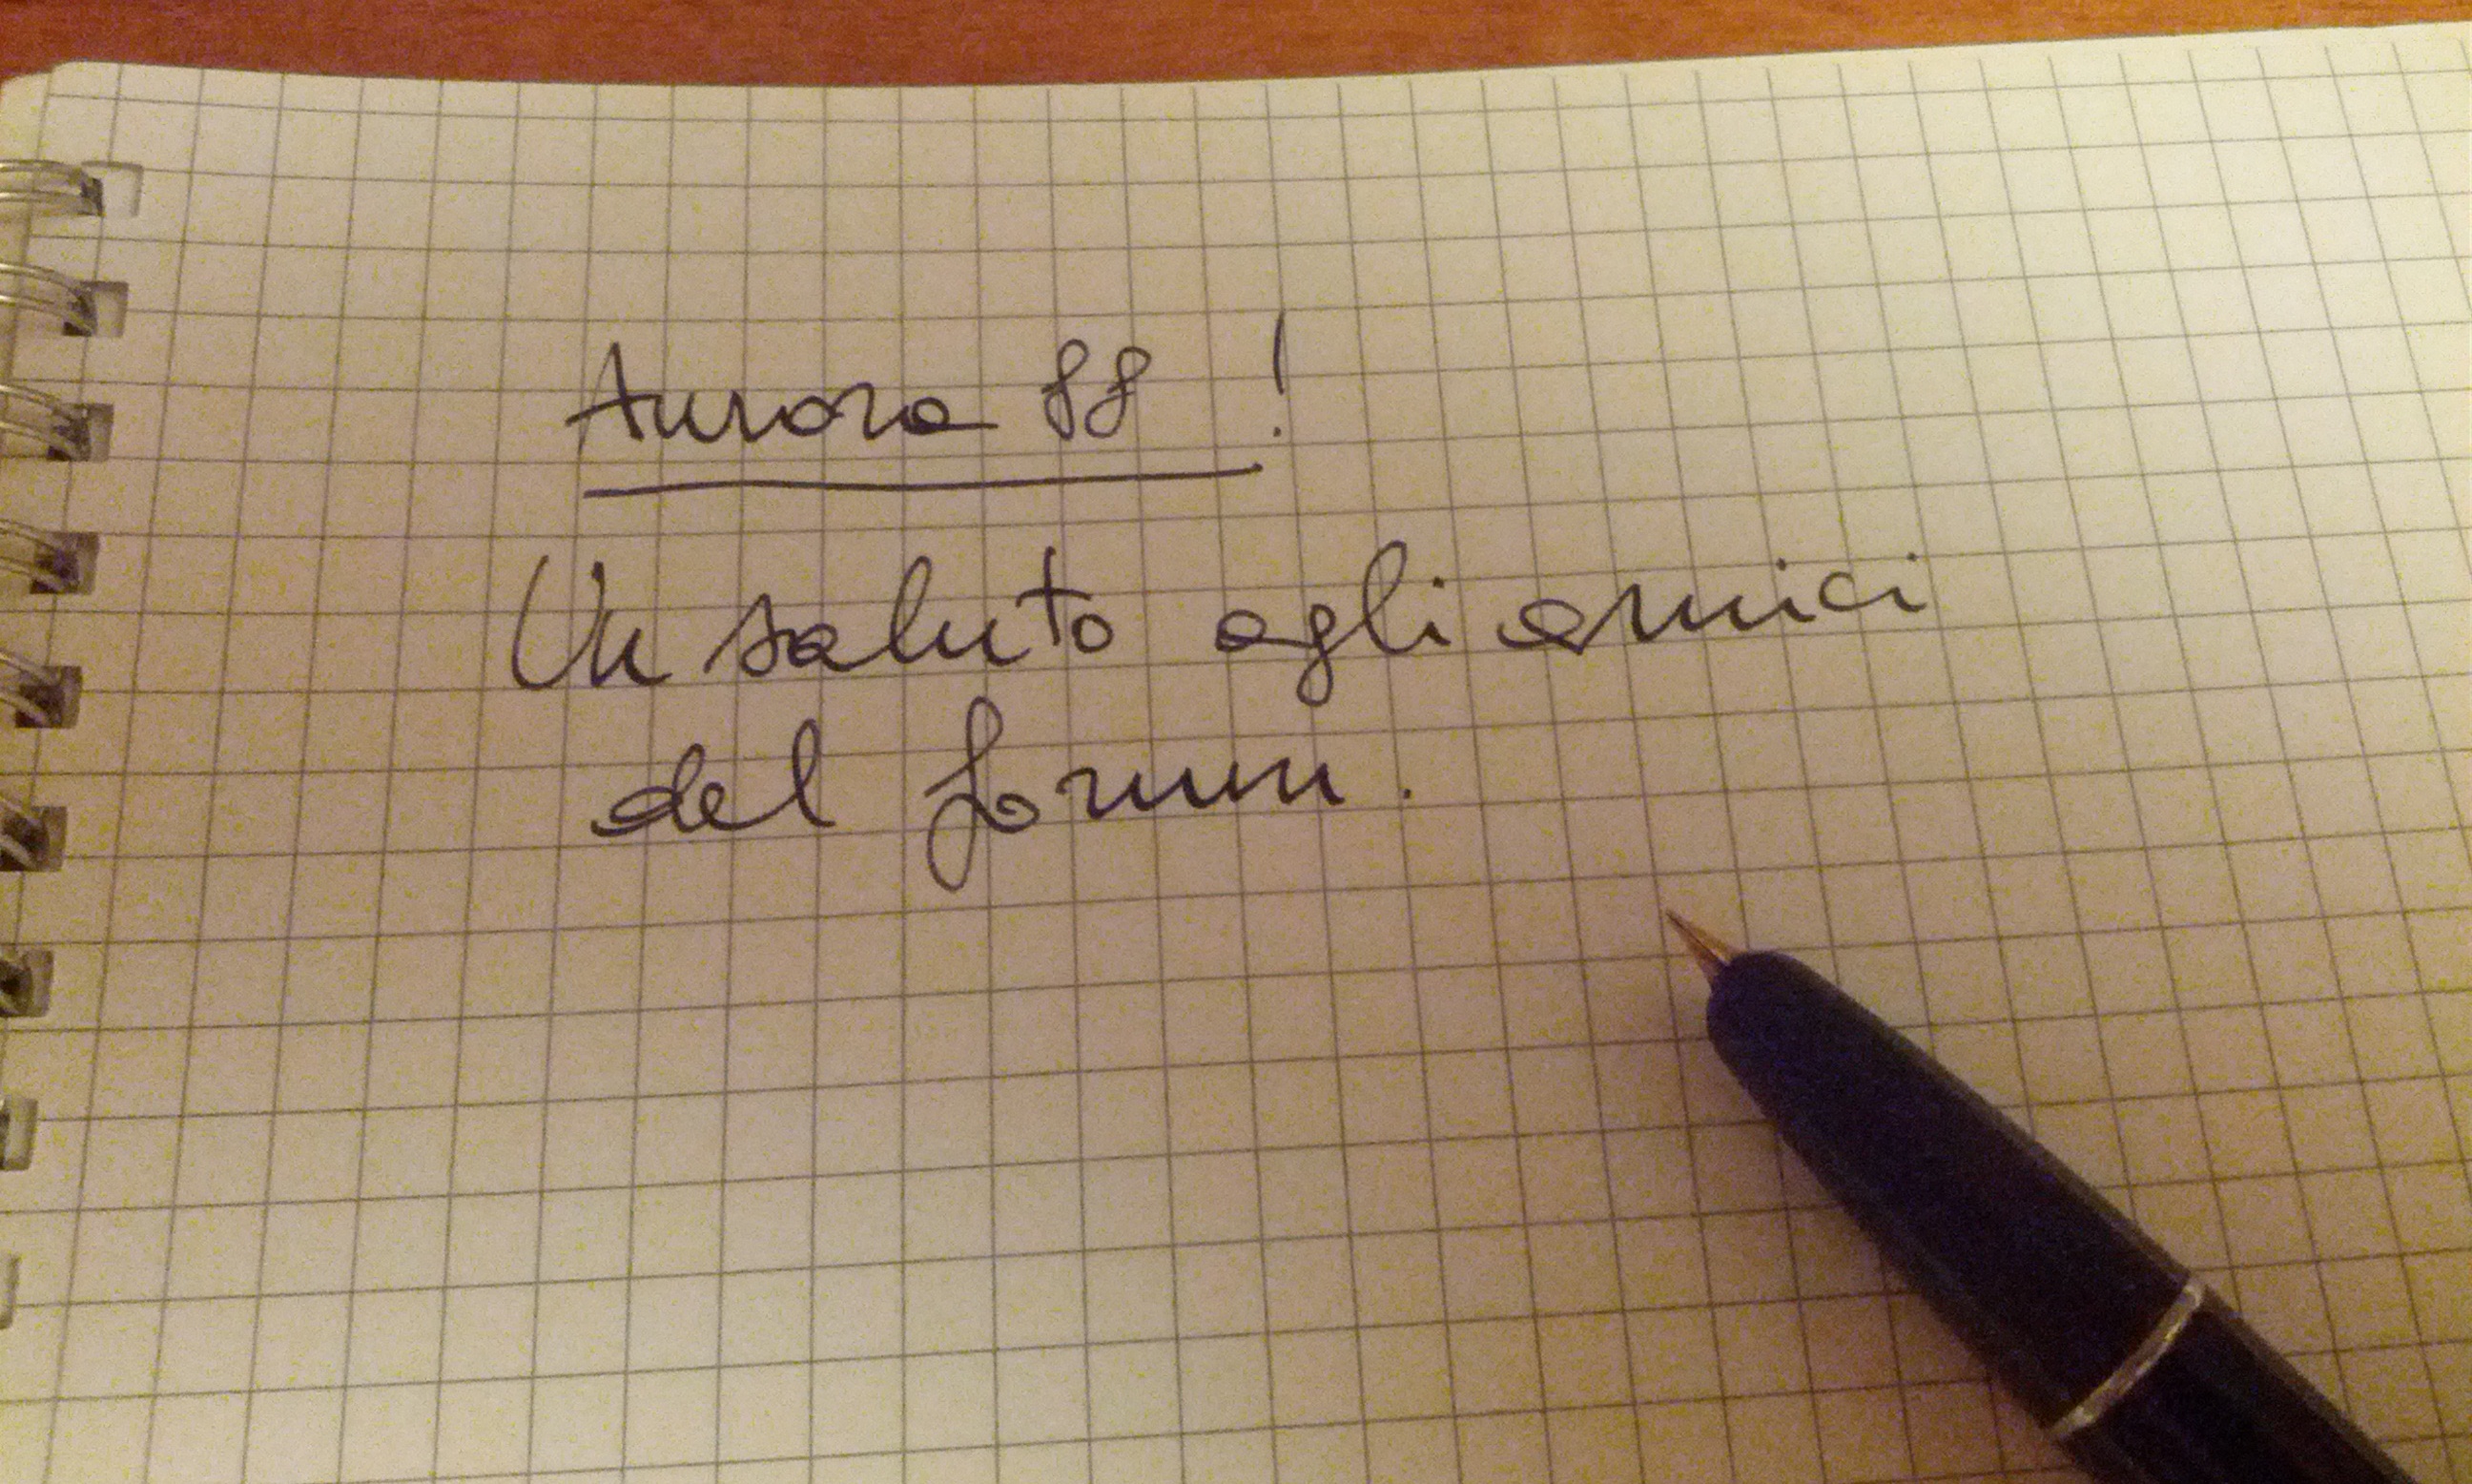 Aurora 88 !
Un saluto agli amici
del forum.